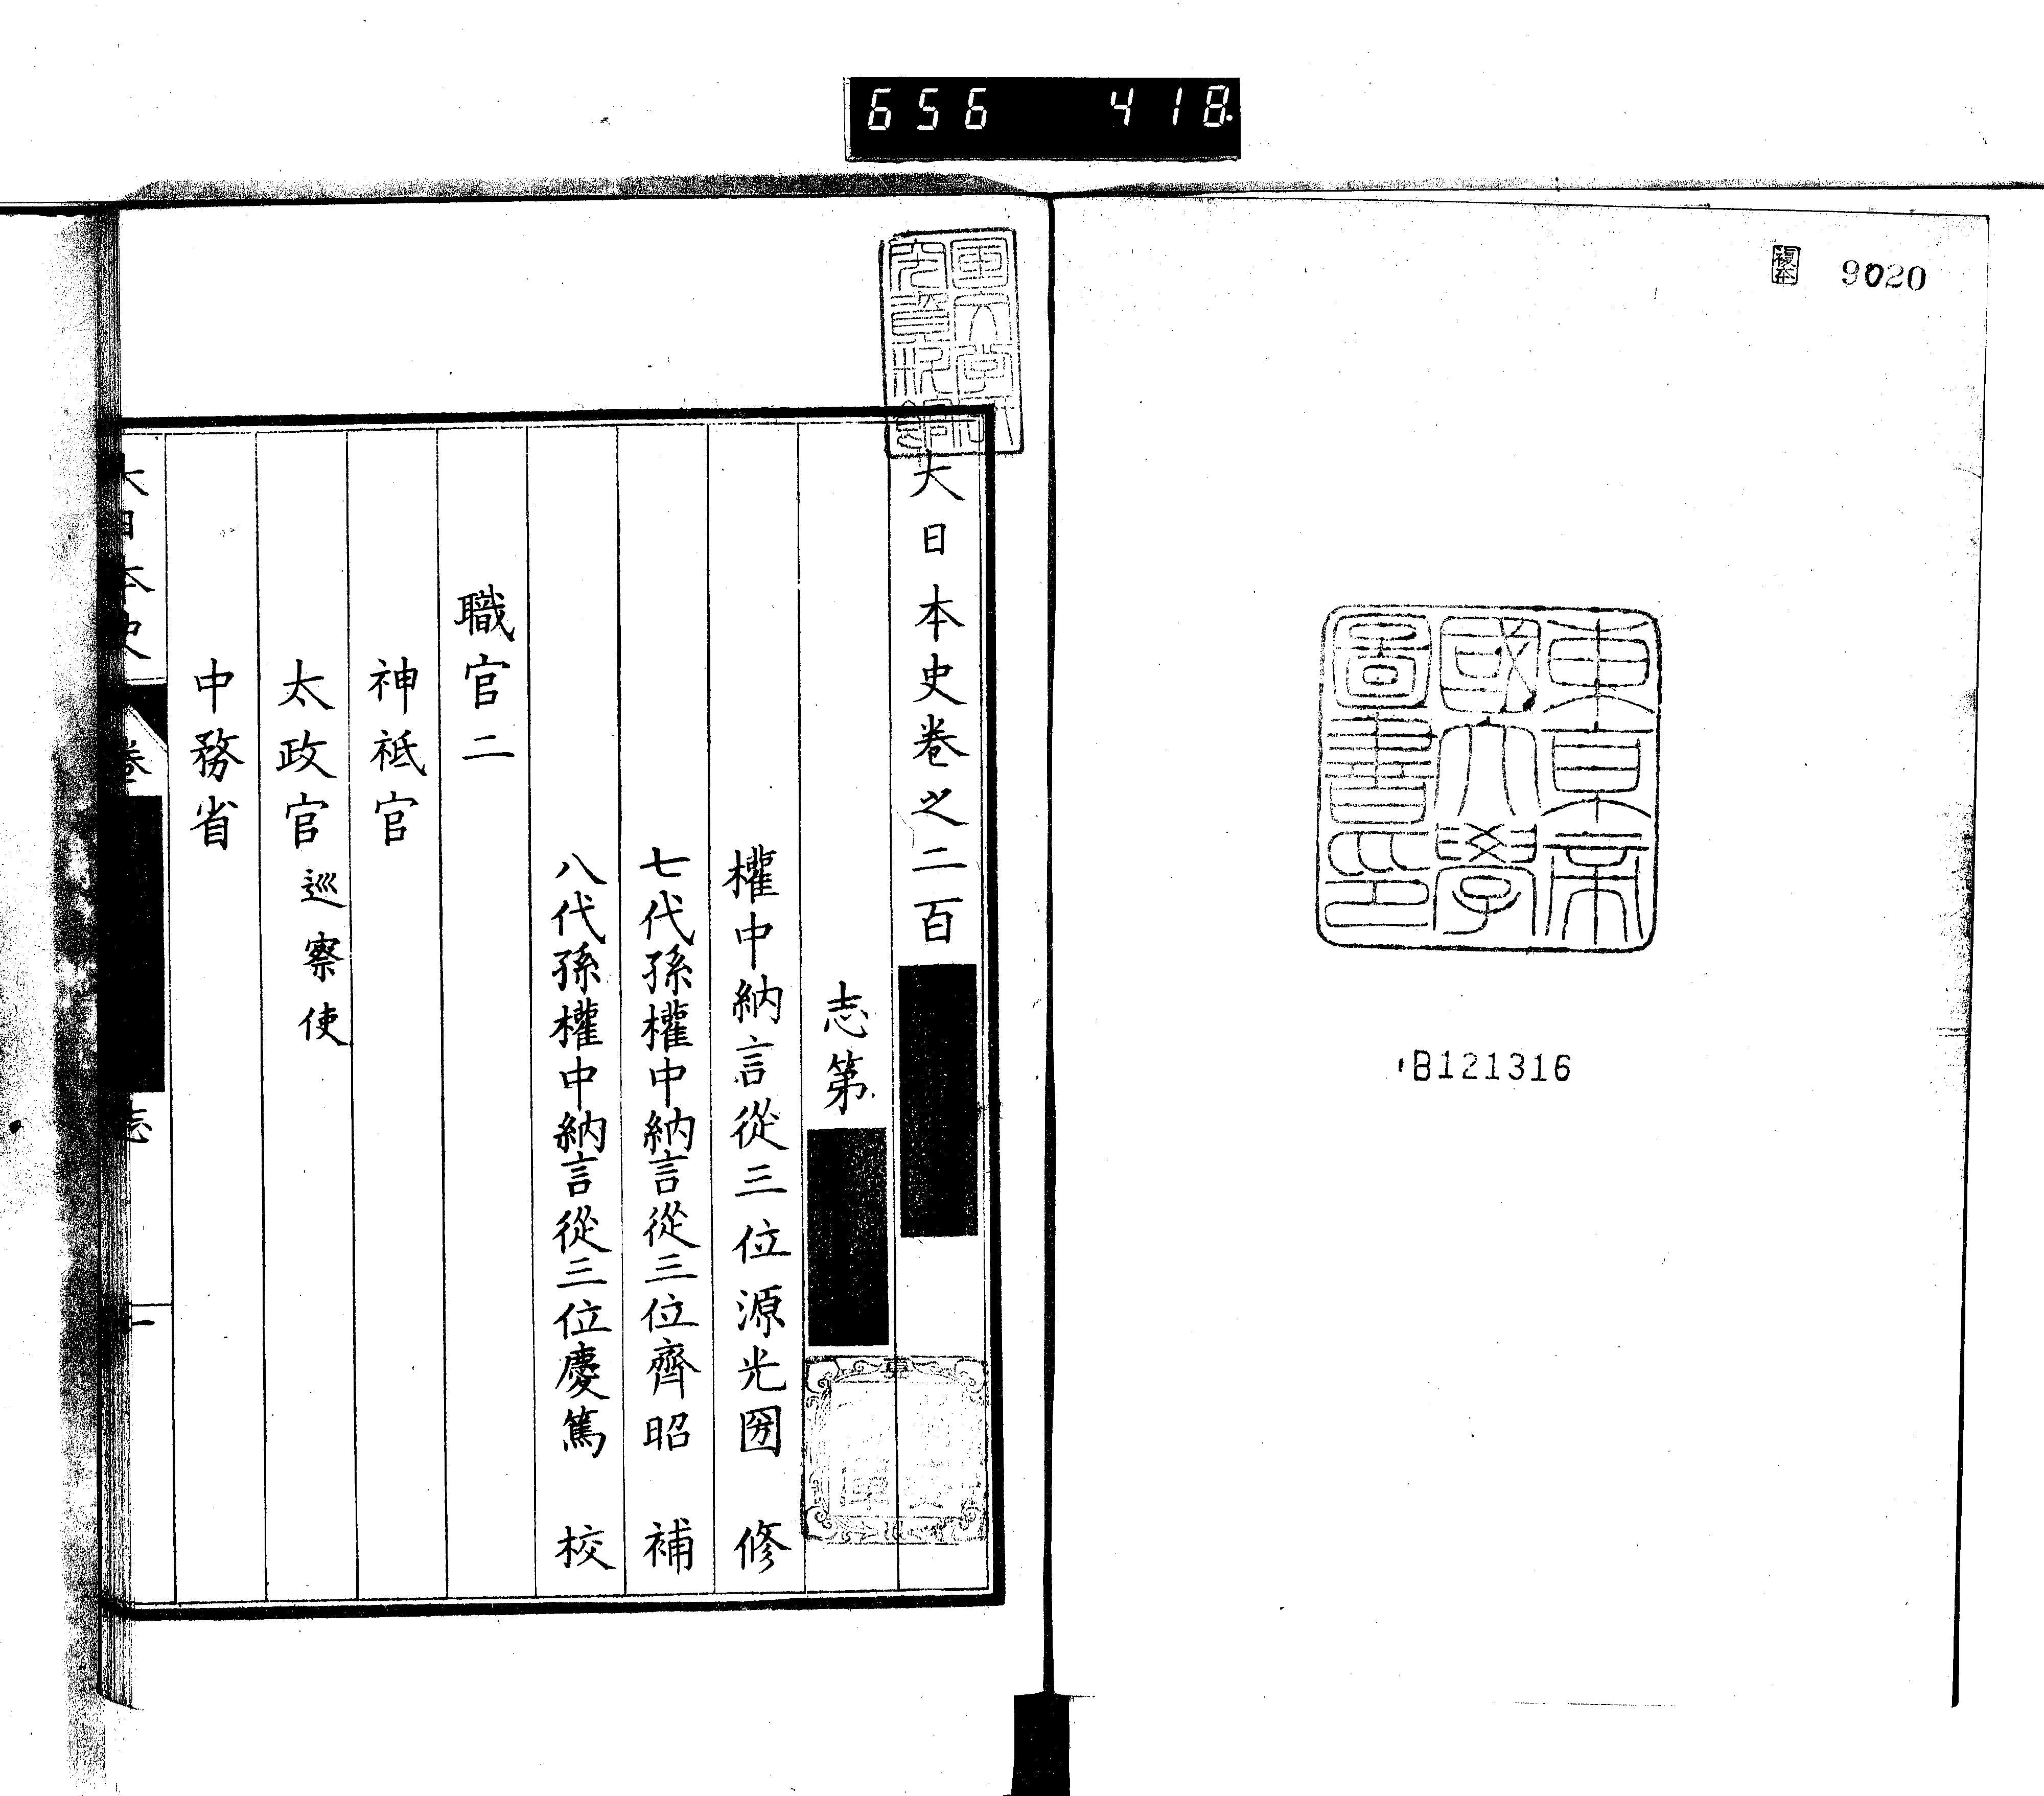 656 418
複本 9020
東京帝
國大學
圖書印
B121316
大日本史卷之二百
志第
權中納言從三位源光圀 修
七代孫權中納言從三位齊昭 補
八代孫權中納言從三位慶篤 校
職官二
神祇官
太政官 巡察使
中務省
大日本史 卷 志 一